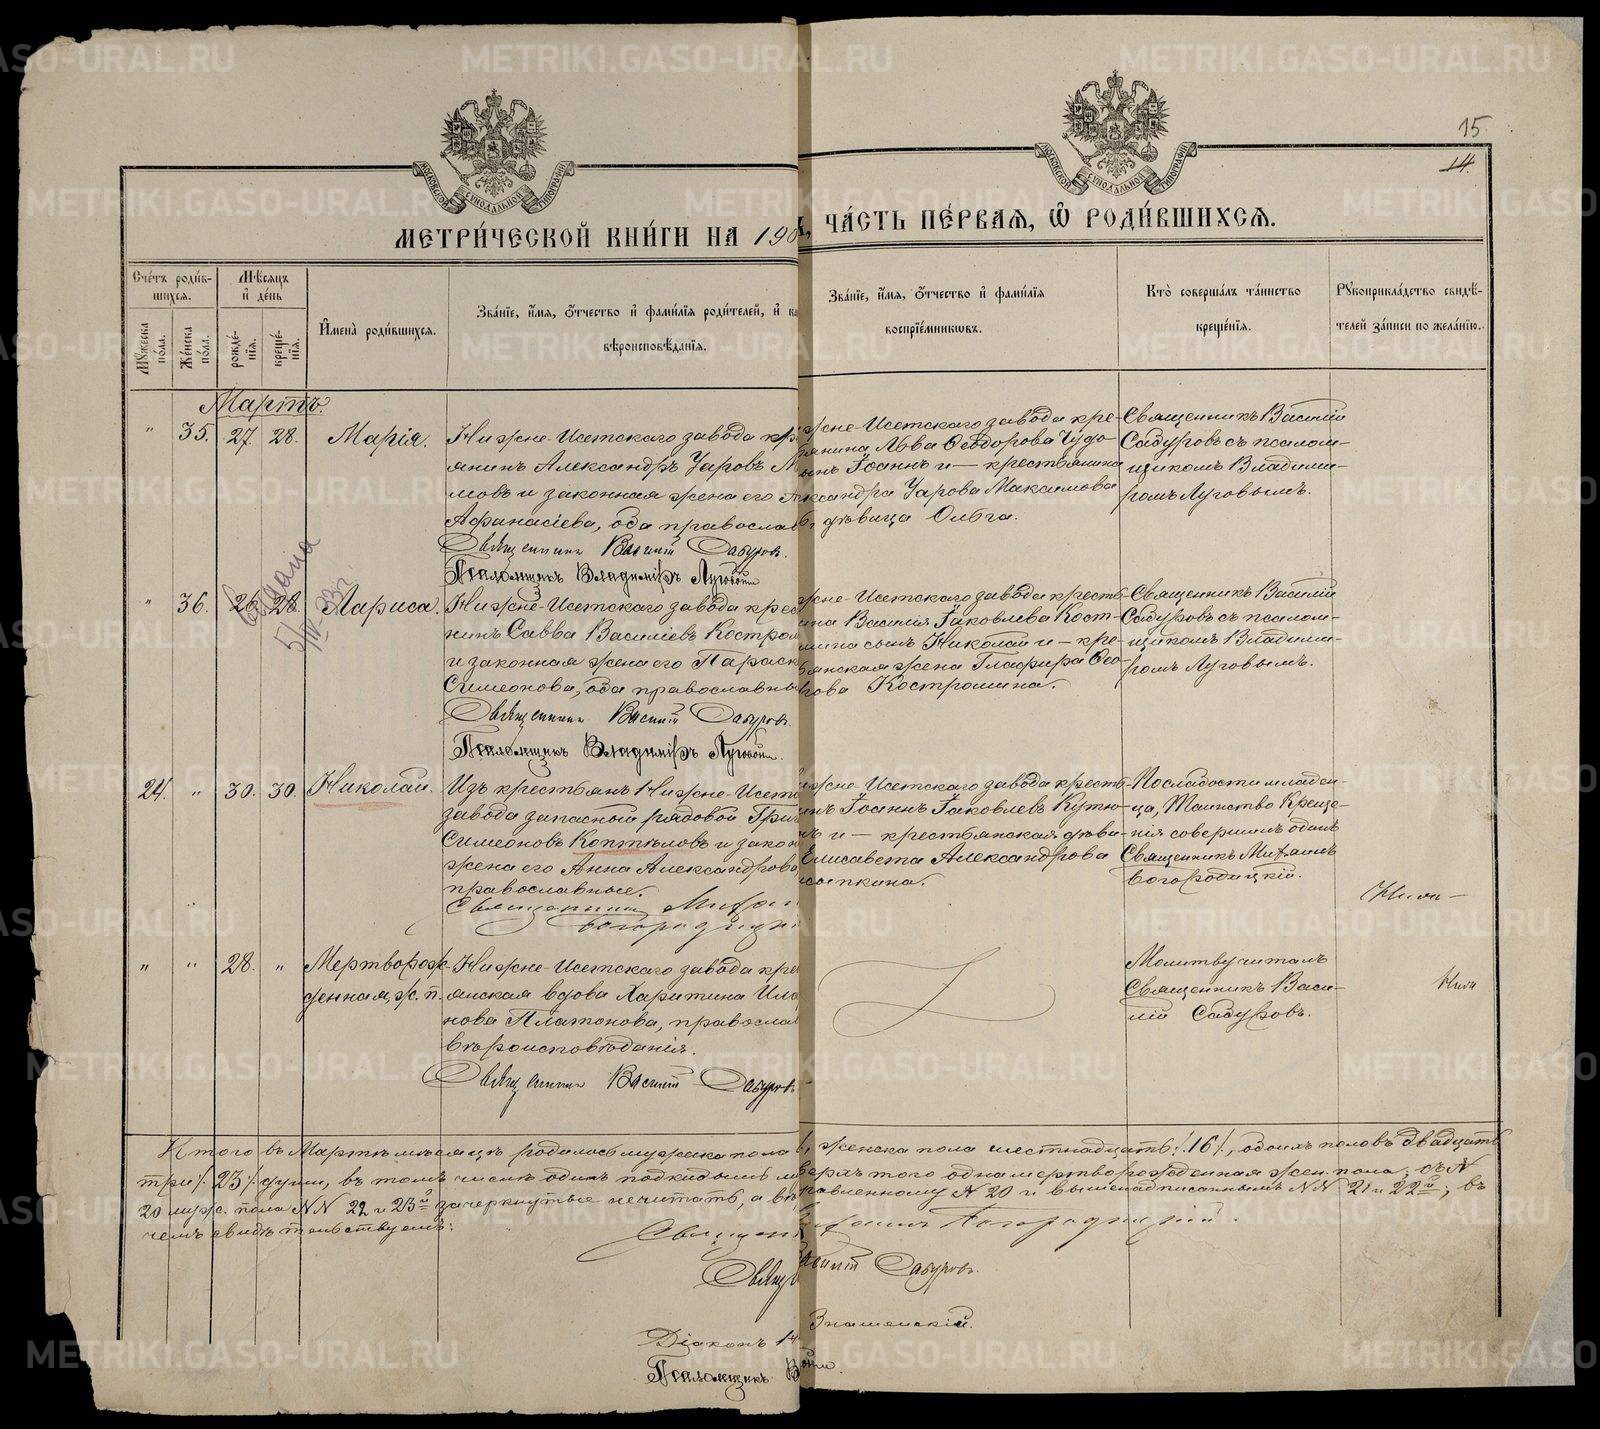 15
14.
МОСКОВСКОЙ СѴНОДАЛЬНОЙ ТИПОГРАФІИ
МОСКОВСКОЙ СѴНОДАЛЬНОЙ ТИПОГРАФІИ
МЕТРИ́ЧЕСКОЙ КНИ́ГИ НА 190
ЧА́СТЬ ПЕ́РВАЯ, Ѡ҆ РОДИ́ВШИХСЯ.
Сче́тъ роди́в-
шихся.
Мꙋжеска по́ла.
Же́нска по́ла.
Мѣ́сяцъ
и҆ де́нь
рожде́-
нїя.
креще́-
нїя.
И҆мена̀ роди́вшихся.
Зва́нїе, и҆́мя, ѻ҆́тчество и҆ фамѝлїя роди́телей, и҆ ка
вѣроисповѣ́данїя.
Зва́нїе, и҆́мя, ѻ҆́тчество и҆ фамѝлїя
воспрїе́мниковъ.
Кто̀ соверша́лъ та́инство
креще́нїя.
Рꙋкоприкла́дство свидѣ́-
телей за́писи по жела́нїю.
Мартъ.
" 35. 27 28. Марія.
Нижне-Исетскаго завода кр
янинъ Александръ Уаровъ М
мовъ и законная жена его
Афанасіева, оба православ
Священникъ Василій Сабуровъ.
Псаломщикъ Владиміръ Луговой
жне-Исетскаго завода кре-
янина Льва Ѳеодорова Чудо-
ынъ Іоаннъ и — крестьянина
ксандра Уарова Максимова
дѣвица Ольга.
Священникъ Василій
Сабуровъ съ псалом-
щикомъ Владими-
ромъ Луговымъ.
" 36. 26 28. Лариса.
Выдана
5/IV 33 г.
Нижне-Исетскаго завода крес
нинъ Савва Василіевъ Костром
и законная жена его Параск
Симеонова, оба православны
Священникъ Василій Сабуровъ.
Псаломщикъ Владиміръ Луговой.
жне-Исетскаго завода кресть-
ина Василія Іаковлева Кост-
мина сынъ Николай и — кре-
ьянская жена Глафира Ѳео-
рова Костромина.
Священникъ Василій
Сабуровъ съ псалом-
щикомъ Владими-
ромъ Луговымъ.
24. " 30. 30. Николай.
Изъ крестьянъ Нижне-Исетс
завода запасный рядовой Гри
Симеоновъ Коптѣловъ и закон
жена его Анна Александрова,
православные.
Священникъ Митрофан
Богородицкі
жне-Исетскаго завода кресть-
инъ Іоаннъ Іаковлевъ Кутю-
ъ и — крестьянская дѣви-
Елисавета Александрова
сыпкина.
По слабости младен-
ца, Таинство Креще-
нія совершилъ одинъ
Священникъ
Богородицкій.
" " 28. " Мертворож-
денная, ж. п.
Нижне-Исетскаго завода кре
янская вдова Харитина
нова Платонова, православ
вѣроисповѣданія.
Священникъ Василій Сабуровъ
Молитву читалъ
Священникъ Васи-
лій Сабуровъ.
Итого въ Мартѣ мѣсяцѣ родилось мужска пола
, женска пола шестнадцать /16/, обоихъ половъ двадцать
три /23/ души, въ томъ числѣ одинъ подкидышъ
верхъ того одна мертворожденная жен. пола; съ №
20 муж. пола №№ 22 и 23й зачеркнутые не читать, а въ
равленному № 20 и вышенадписаннымъ №№ 21 и 22й; въ
чемъ свидѣтельствуемъ:
Священ
Богородицкій.
Свящ
асилій Сабуровъ.
Діаконъ
Знаменскій.
Псаломщикъ В
ой.